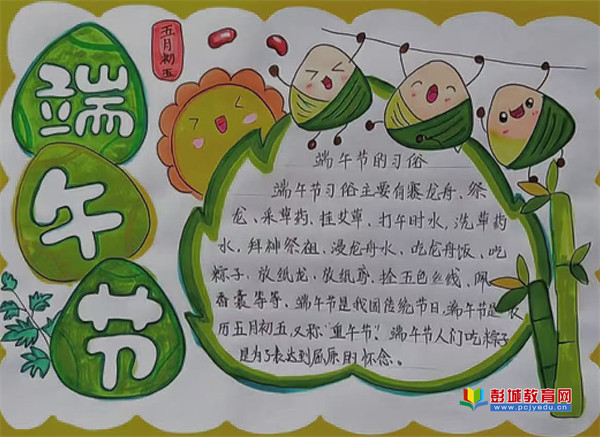 端午节
五月初五
端午节的习俗
端午节习俗主要有赛龙舟、祭
龙、采草药、挂艾草、打午时水,洗草药
水,拜神祭祖、浸龙舟水、吃龙舟饭、吃
粽子、放纸龙、放纸鸢、拴五色丝线、佩
香囊等等、端午节是我国传统节日,端午节是农
历五月初五又称“重午节”. 端午节人们吃粽子
是为了表达到屈原的怀念。
彭城教育网
www.pcjyedu.cn